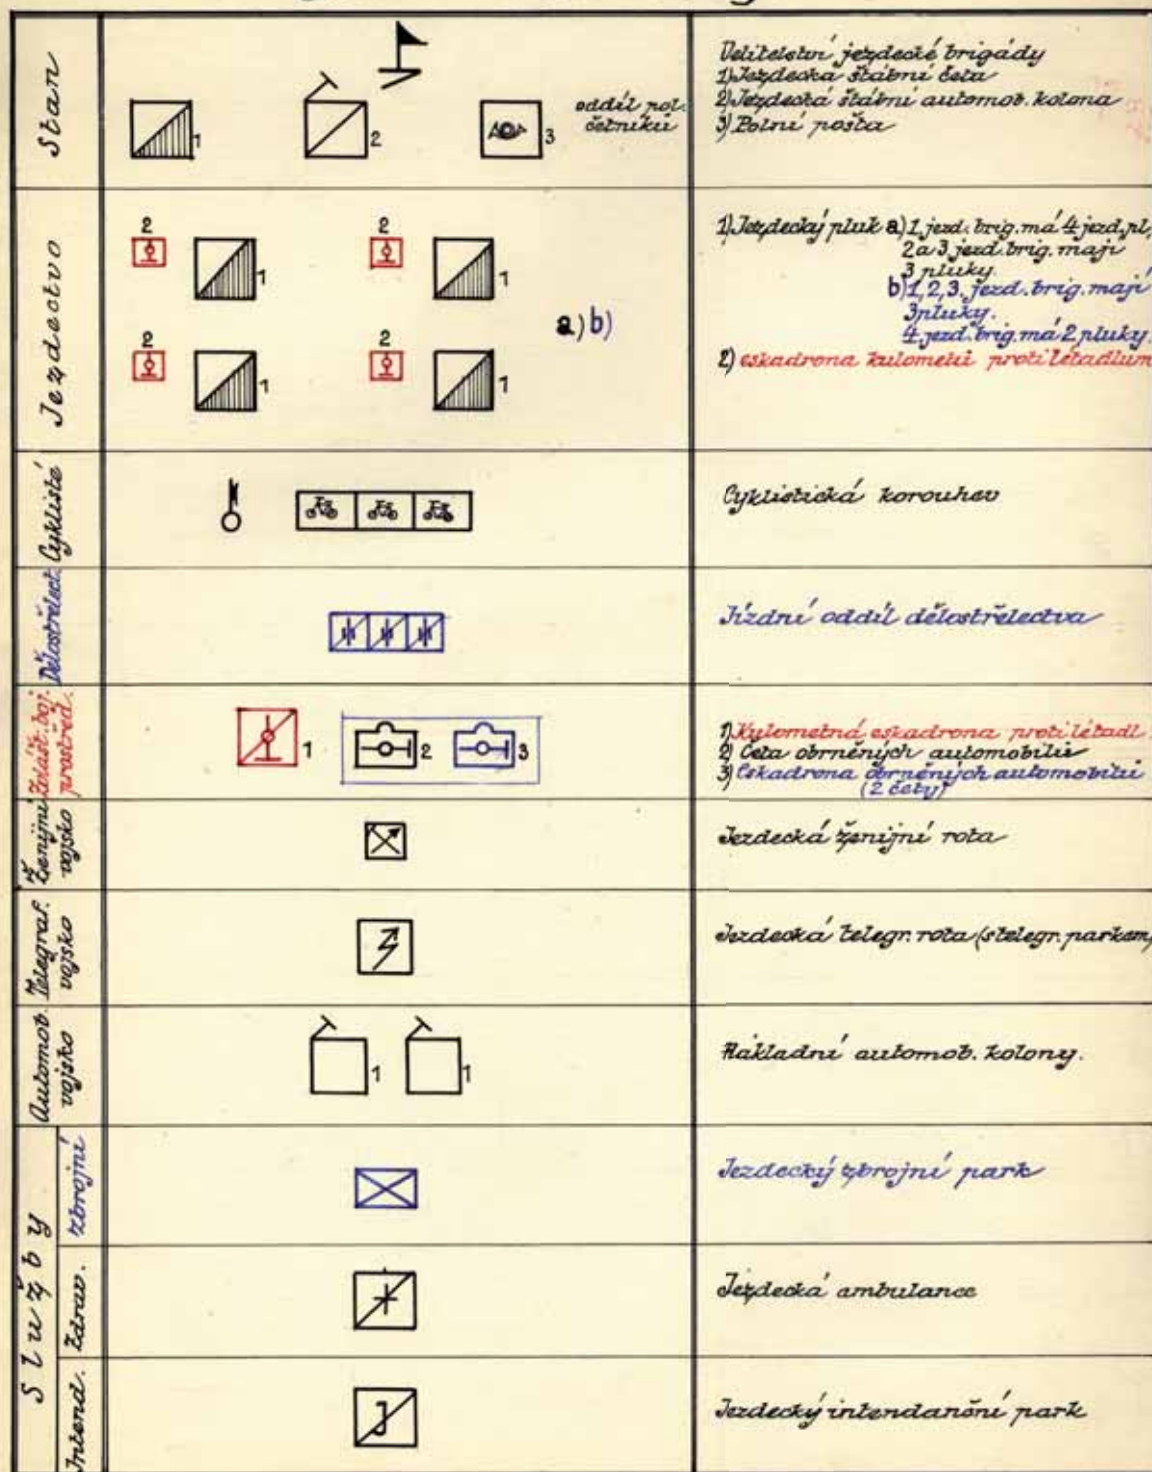 Stan
1
2
3
oddíl pol.
četníků
Velitelství jezdecké brigády
1) Jezdecká štábní četa
2) Jezdecká štábní automob. kolona
3) Polní pošta
Jezdectvo
2
1
2
1
2
1
2
1
a) b)
1) Jezdecký pluk a) 1 jezd. brig. má 4 jezd. pl.
2 a 3 jezd. brig. mají
3 pluky
b) 1, 2, 3. jezd. brig. mají
3 pluky.
4 jezd. brig. má 2 pluky
2) eskadrona kulometů proti létadlům
Cyklisté
Cyklistická korouhev
Dělostřelect.
Jízdní oddíl dělostřelectva
Zvlášt. boj.
prostřed.
1
2
3
1) Kulometná eskadrona proti létadl.
2) Četa obrněných automobilů
3) Eskadrona obrněných automobilů
(2 čety)
Ženijní
vojsko
Jezdecká ženijní rota
Telegraf.
vojsko
Jezdecká telegr. rota (s telegr. parkem)
Automob.
vojsko
1
1
Nákladní automob. kolony.
Služby
Zbrojní
Jezdecký zbrojní park
Zdrav.
Jezdecká ambulance
Intend.
J
Jezdecký intendanční park